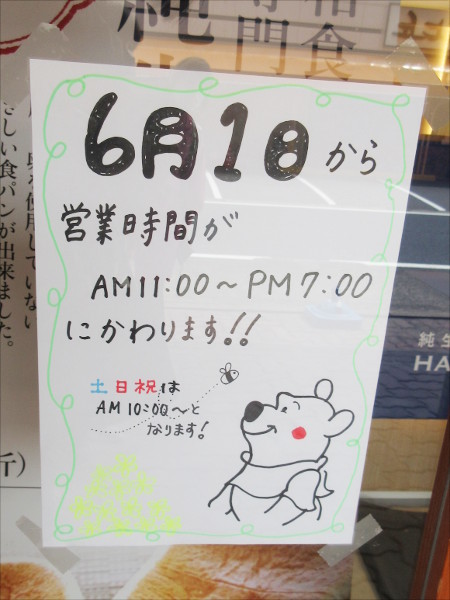 6月1日から
営業時間が
AM11:00～PM7:00
にかわります!!
土日祝は
AM10:00～と
なります!
しい食パンが出来ました。
純生
HA